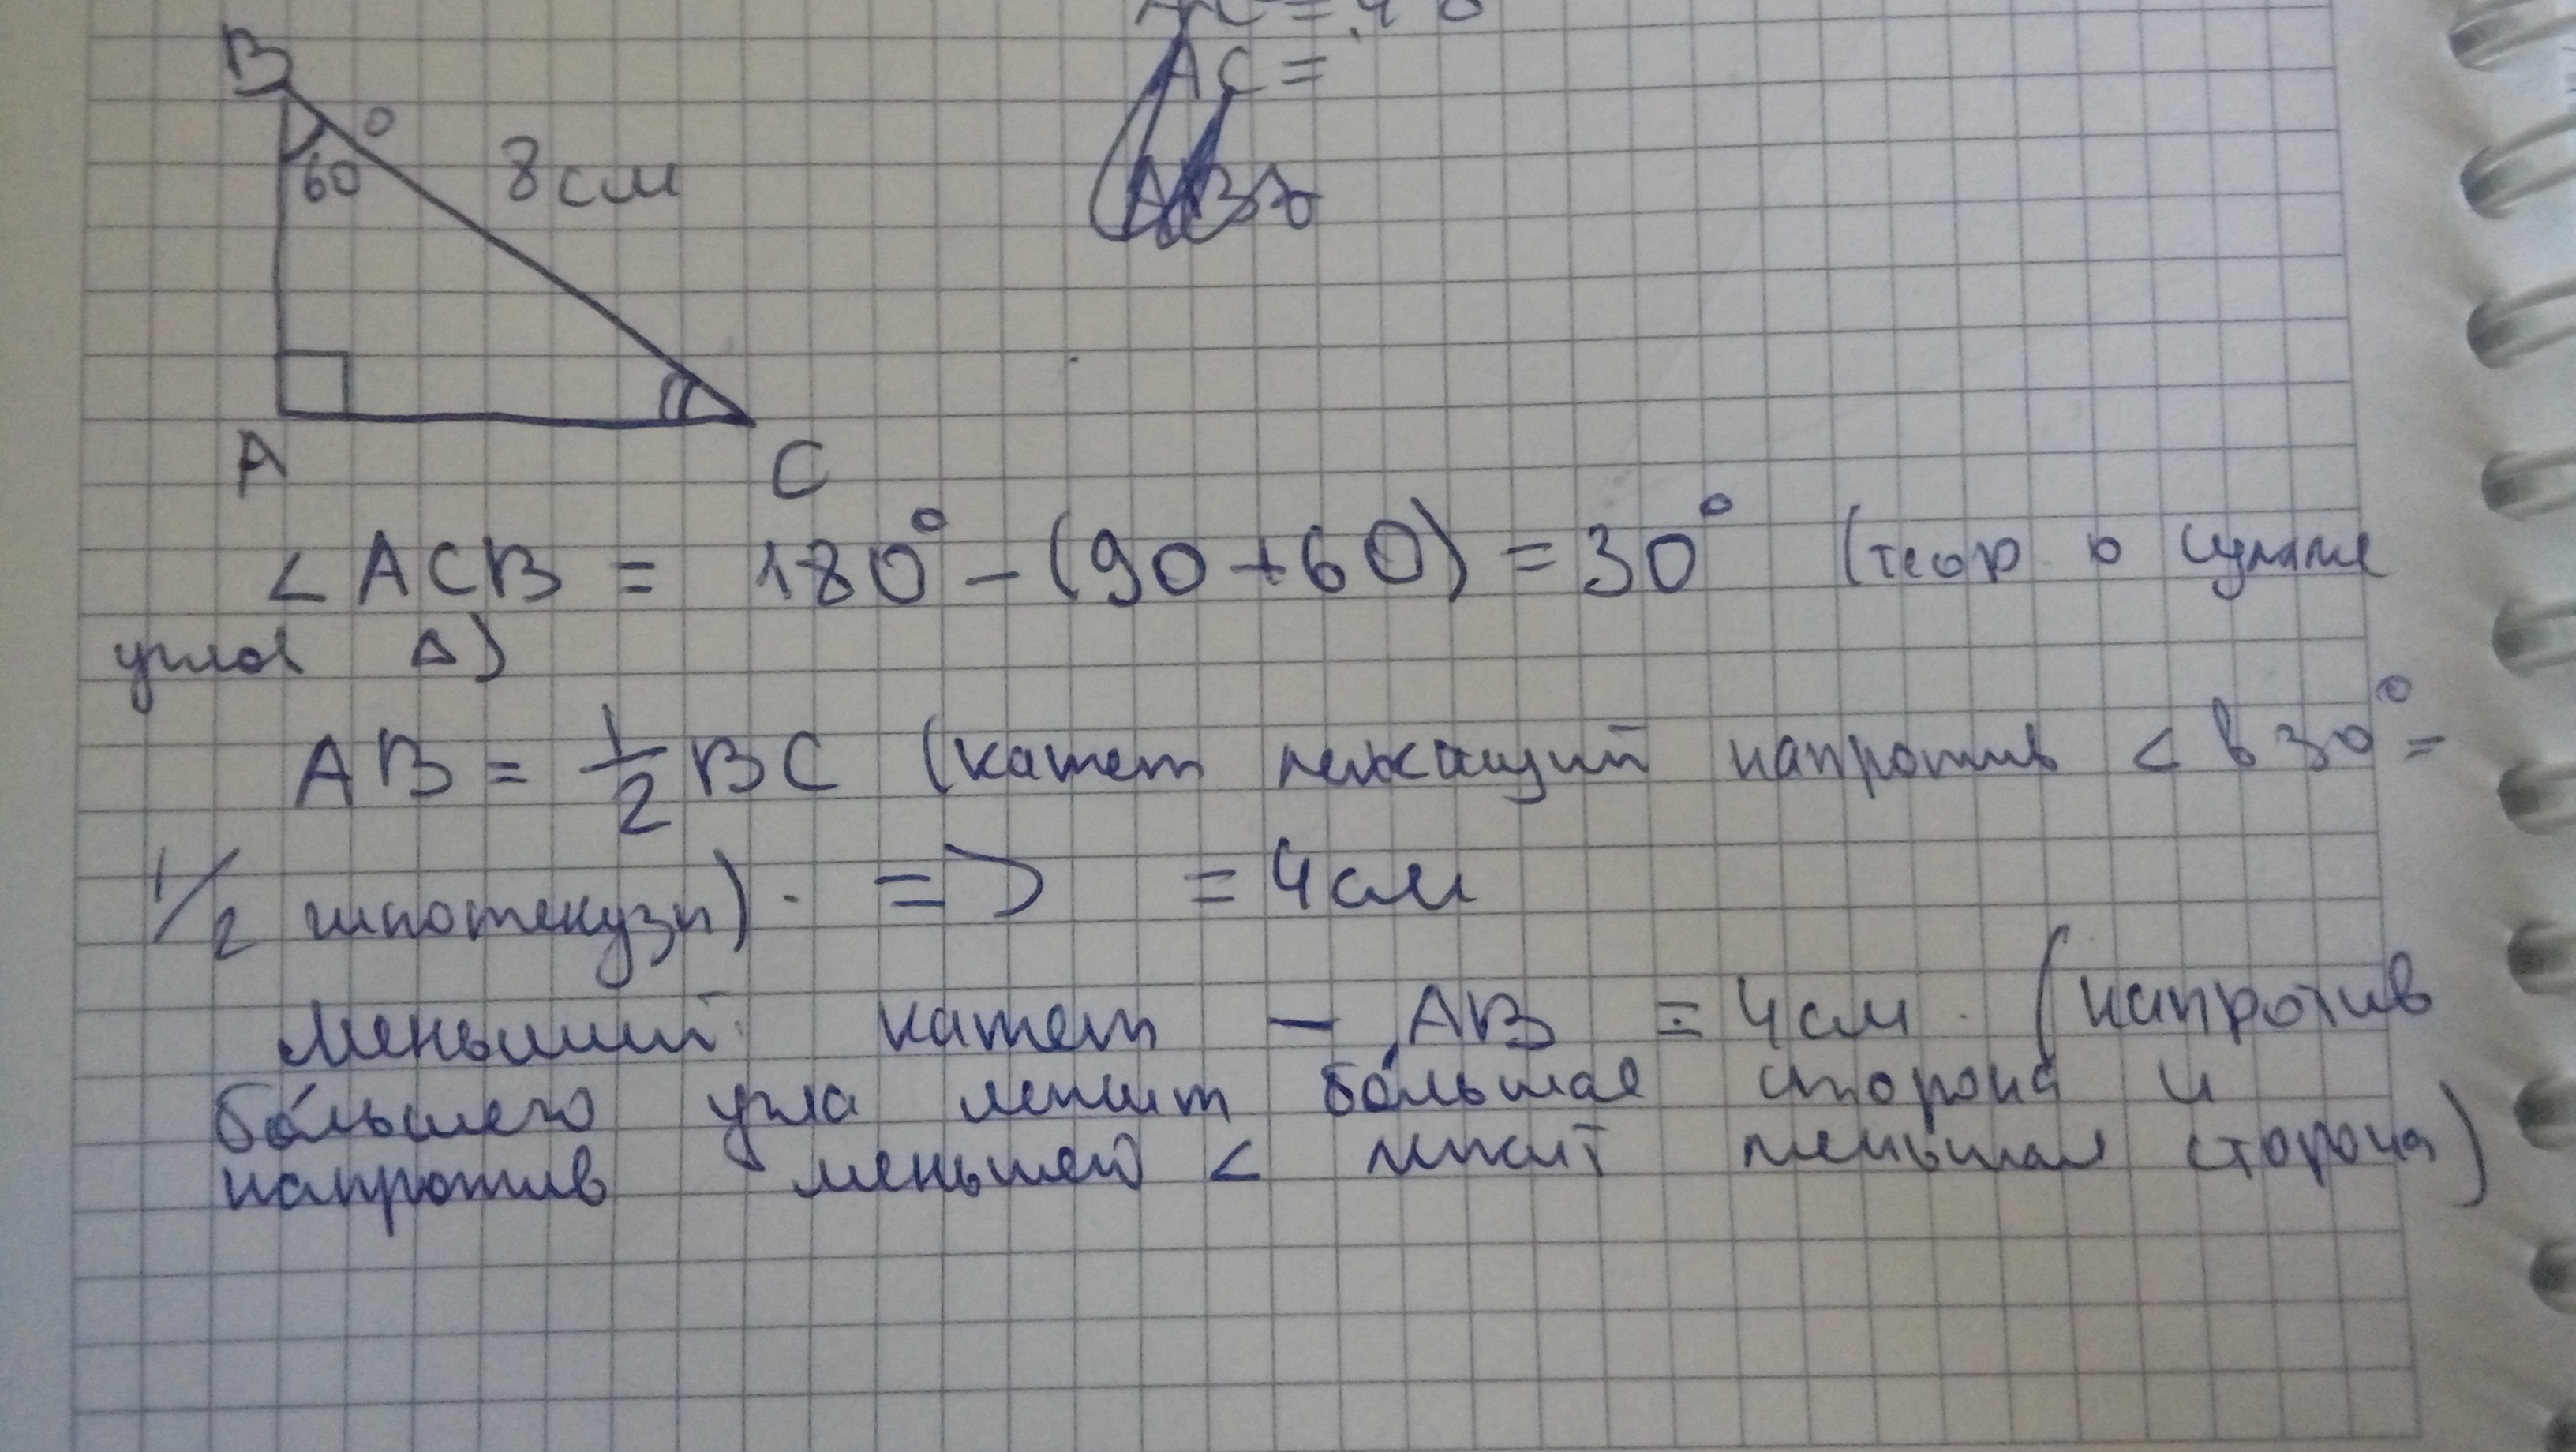 AC =
B
60°
8 см
A
C
< ACB = 180° - (90 + 60) = 30° (теор о сумме
углов Δ)
AB = 1/2 BC (катет лежащий напротив < в 30° =
1/2 гипотенузы). => = 4 см
Меньший катет - AB = 4 см. (напротив
бо́льшего угла лежит бо́льшая сторона и
напротив меньшего < лежит меньшая сторона)